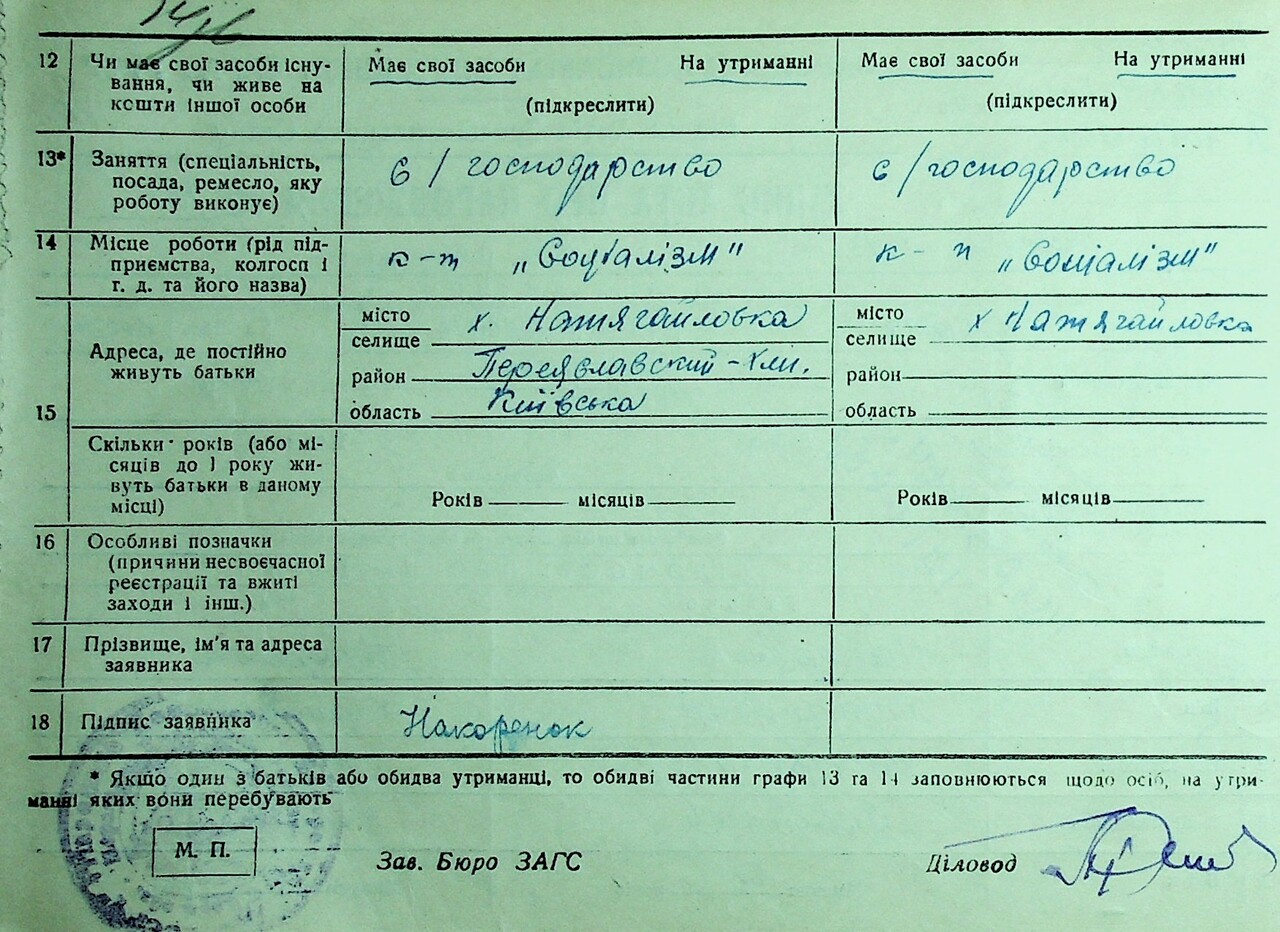 12 Чи має свої засоби існу- Має свої засоби На утриманні Має свої засоби На утриманні
вання, чи живе на
кошти іншої особи (підкреслити) (підкреслити)
13* Заняття (спеціальність, с/господарство с/господарство
посада, ремесло, яку
роботу виконує)
14 Місце роботи (рід під- к-т "Соціалізм" к-п "Соціалізм"
приємства, колгосп і
г. д. та його назва)
15 Адреса, де постійно
живуть батьки
місто х. Натягайловка місто х Натягайловка
селище селище
район Переяславский-Хми. район
область Київська область
Скільки років (або мі-
сяців до 1 року жи-
вуть батьки в даному
місці) Років місяців Років місяців
16 Особливі позначки
(причини несвоєчасної
реєстрації та вжиті
заходи і інш.)
17 Прізвище, ім'я та адреса
заявника
18 Підпис заявника Накоренок
* Якщо один з батьків або обидва утриманці, то обидві частини графи 13 та 14 заповнюються щодо осіб, на утри-
манні яких вони перебувають
М. П. Зав. Бюро ЗАГС Діловод